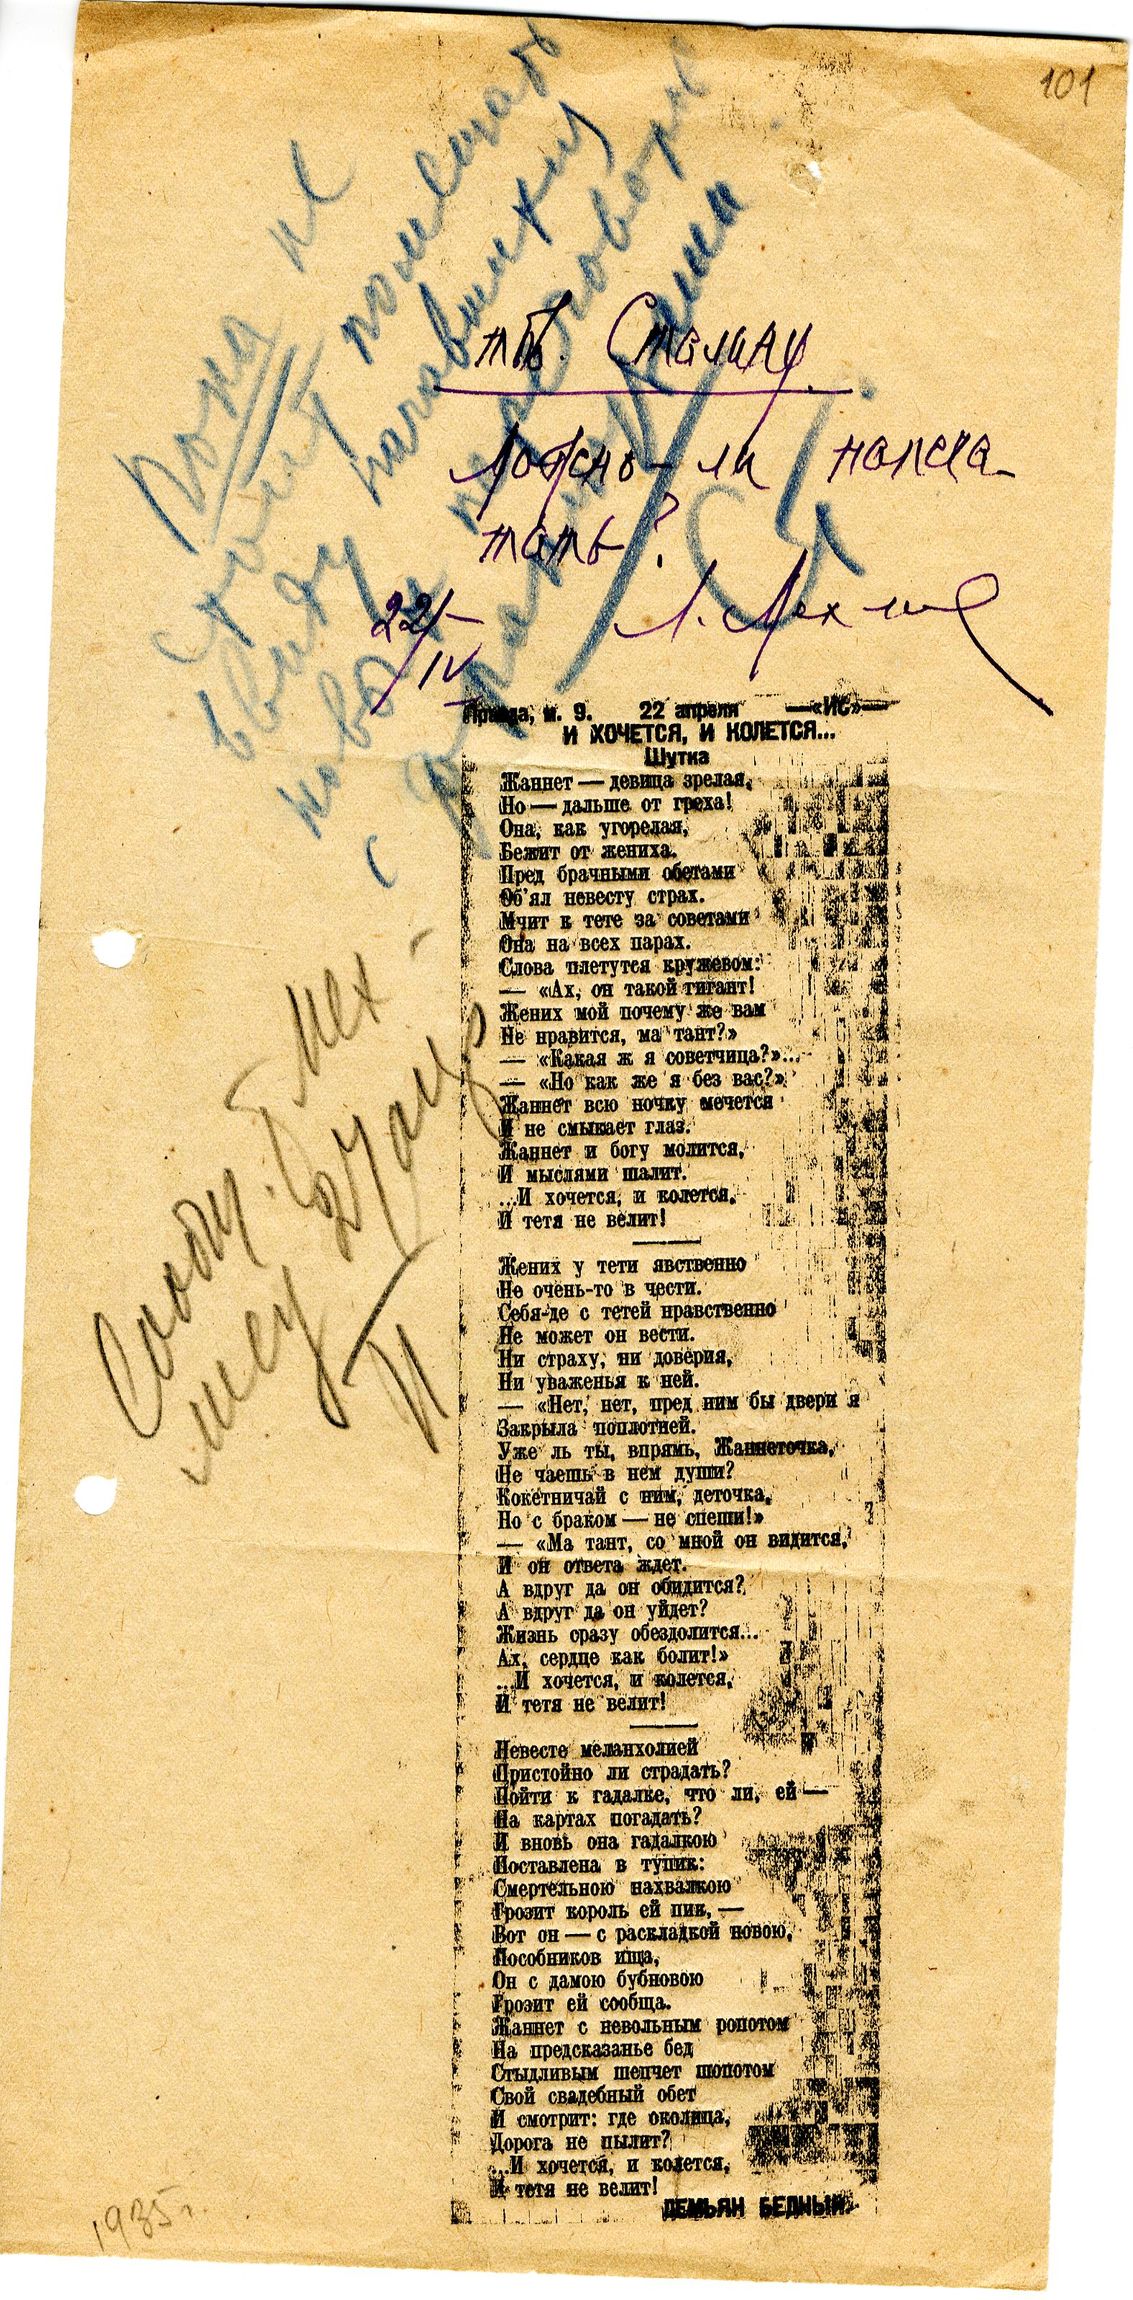 101
Пока не
стоит помещать
ввиду начавшихся
новых переговоров
с французами.
И. Ст.
тов. Сталину
Можно-ли напеча-
тать?
22/IV Л. Мехлис
Сообщ. т. Мех-
лису
Правда, м. 9. 22 апреля —«ИС»—
И ХОЧЕТСЯ, И КОЛЕТСЯ...
Шутка
Жаннет — девица зрелая,
Но — дальше от греха!
Она, как угорелая,
Бежит от жениха.
Пред брачными обетами
Об'ял невесту страх.
Мчит к тете за советами
Она на всех парах.
Слова плетутся кружевом:
— «Ах, он такой гигант!
Жених мой почему же вам
Не нравится, ма тант?»
— «Какая ж я советчица?»...
— «Но как же я без вас?»
Жаннет всю ночку мечется
И не смыкает глаз.
Жаннет и богу молится,
И мыслями шалит.
...И хочется, и колется,
И тетя не велит!
Жених у тети явственно
Не очень-то в чести.
Себя-де с тетей нравственно
Не может он вести.
Ни страху, ни доверия,
Ни уваженья к ней.
— «Нет, нет, пред ним бы двери я
Закрыла поплотней.
Уже ль ты, впрямь, Жаннеточка,
Не чаешь в нем души?
Кокетничай с ним, деточка,
Но с браком — не спеши!»
— «Ма тант, со мной он видится,
И он ответа ждет.
А вдруг да он обидится?
А вдруг да он уйдет?
Жизнь сразу обездолится...
Ах, сердце как болит!»
...И хочется, и колется,
И тетя не велит!
Невесте меланхолией
Пристойно ли страдать?
Пойти к гадалке, что ли, ей —
На картах погадать?
И вновь она гадалкою
Поставлена в тупик:
Смертельною нахвалкою
Грозит король ей пик, —
Вот он — с раскладкой новою,
Пособников ища,
Он с дамою бубновою
Грозит ей сообща.
Жаннет с невольным ропотом
На предсказанье бед
Стыдливым шепчет шопотом
Свой свадебный обет
И смотрит: где околица,
Дорога не пылит?
...И хочется, и колется,
И тетя не велит!
ДЕМЬЯН БЕДНЫЙ.
1935 г.